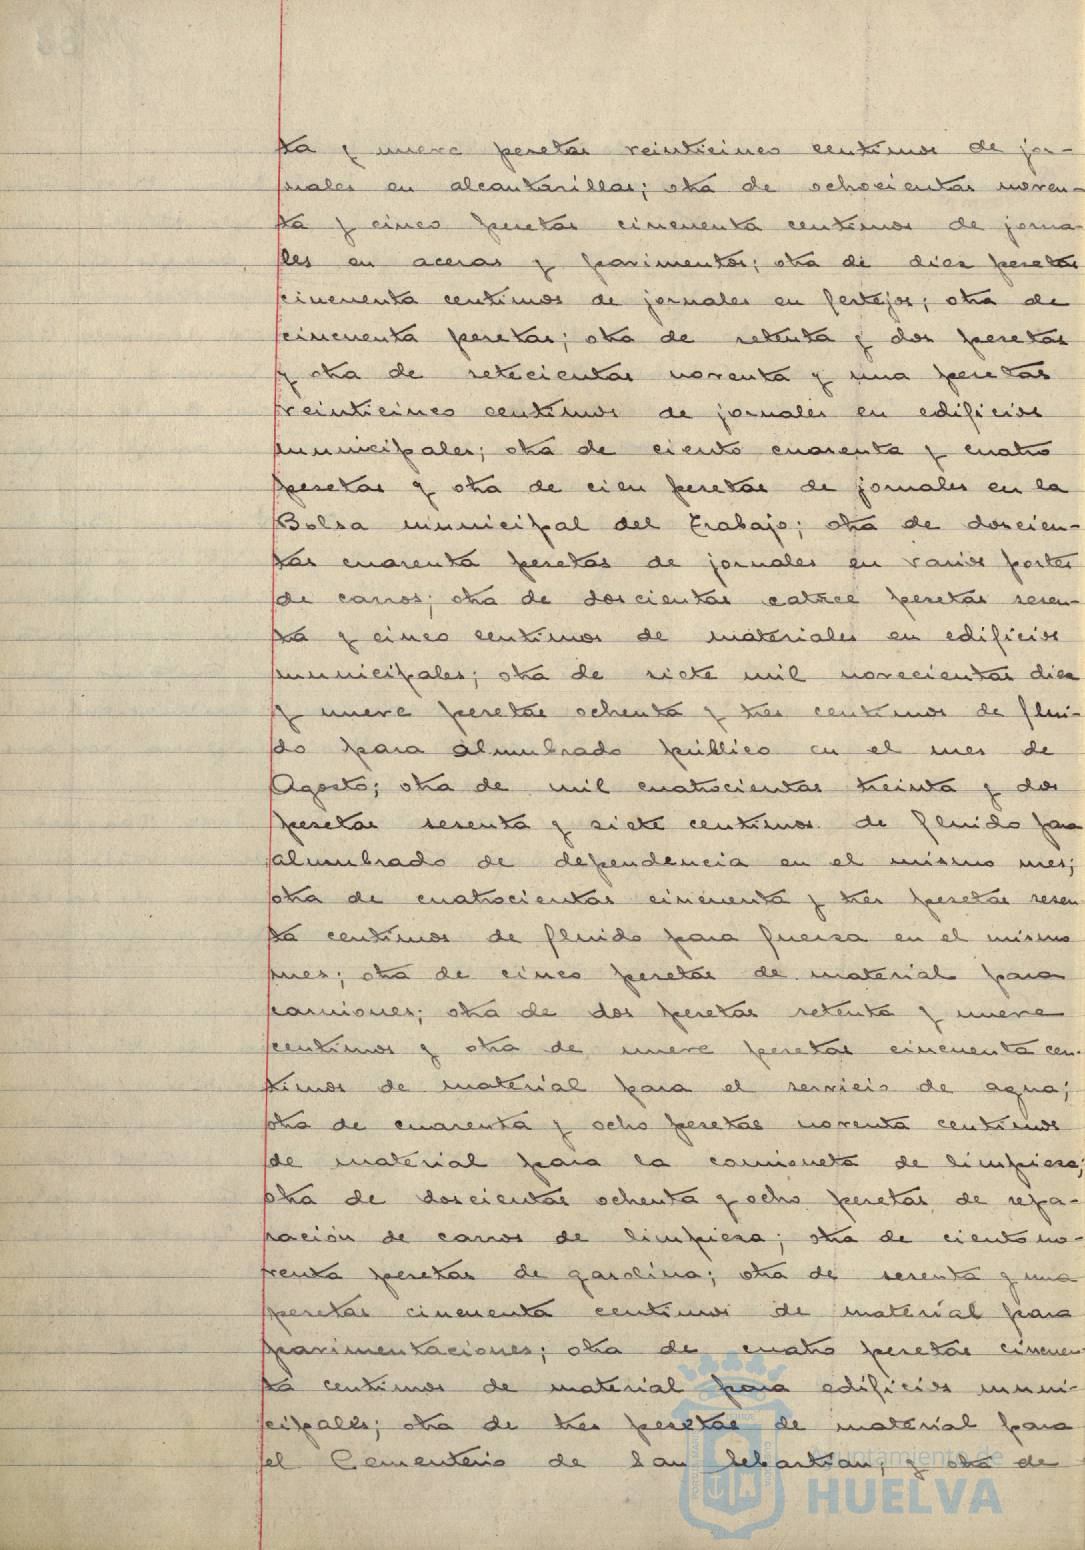 ta y nueve pesetas veinticinco centimos de jor-
nales en alcantarillas; otra de ochocientas noven-
ta y cinco pesetas cincuenta centimos de jorna-
les en aceras y pavimentos; otra de diez pesetas
cincuenta centimos de jornales en festejos; otra de
cincuenta pesetas; otra de setenta y dos pesetas
y otra de setecientas noventa y una pesetas
veinticinco centimos de jornales en edificios
municipales; otra de ciento cuarenta y cuatro
pesetas y otra de cien pesetas de jornales en la
Bolsa municipal del trabajo; otra de doscien-
tas cuarenta pesetas de jornales en varios portes
de carros; otra de doscientas catorce pesetas sesen-
ta y cinco centimos de materiales en edificios
municipales; otra de siete mil novecientas diez
y nueve pesetas ochenta y tres centimos de flui-
do para alumbrado público en el mes de
Agosto; otra de mil cuatrocientas treinta y dos
pesetas sesenta y siete centimos de fluido para
alumbrado de dependencia en el mismo mes;
otra de cuatrocientas cincuenta y tres pesetas sesen
ta centimos de fluido para fuerza en el mismo
mes; otra de cinco pesetas de material para
camiones; otra de dos pesetas setenta y nueve
centimos y otra de nueve pesetas cincuenta cen-
timos de material para el servicio de agua;
otra de cuarenta y ocho pesetas noventa centimos
de material para la camioneta de limpieza;
otra de doscientas ochenta y ocho pesetas de repa-
ración de carros de limpieza; otra de ciento no-
venta pesetas de gasolina; otra de sesenta y una
pesetas cincuenta centimos de material para
pavimentaciones; otra de cuatro pesetas cincuen-
ta centimos de material para edificios muni-
cipales; otra de tres pesetas de material para
el Cementerio de San Sebastian; y otra de
Ayuntamiento de
HUELVA